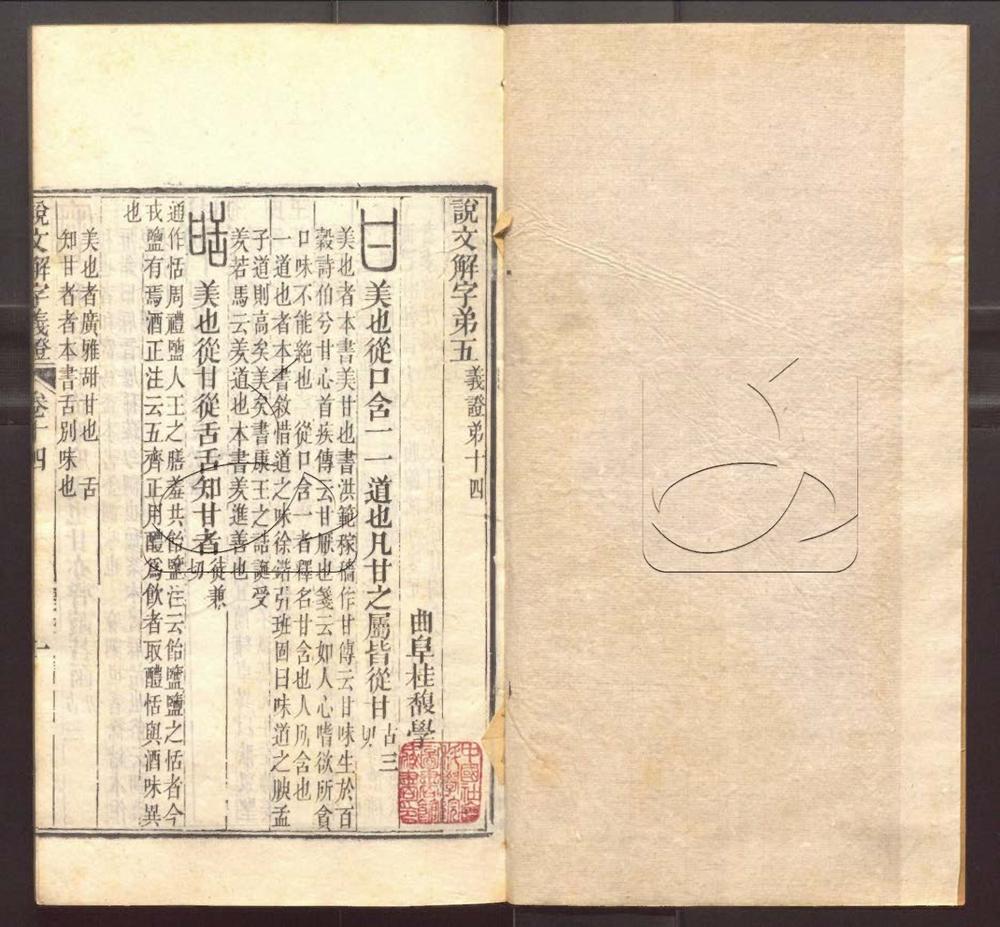 說文解字弟五 義證弟十四
曲阜桂馥學
甘 美也從口含一一道也凡甘之屬皆從甘 古三切
美也者本書美甘也書洪範稼穡作甘傳云甘味生於百
穀詩伯兮甘心首疾傳云甘厭也箋云如人心嗜欲所貪
口味不能絕也 從口含一者釋名甘含也人所含也
一道也者本書敘惜道之味徐鍇引班固曰味道之腴孟
子道則高矣美矣書康王之誥誕受
羑若馬云羑道也本書羑進善也
美也從甘從舌舌知甘者 徒兼切
通作恬周禮鹽人王之膳羞共飴鹽注云飴鹽鹽之恬者今
戎鹽有焉酒正注云五齊正用醴爲飲者取醴恬與酒味異
也
美也者廣雅甜甘也 舌
知甘者者本書舌別味也
說文解字義證 卷十四 一